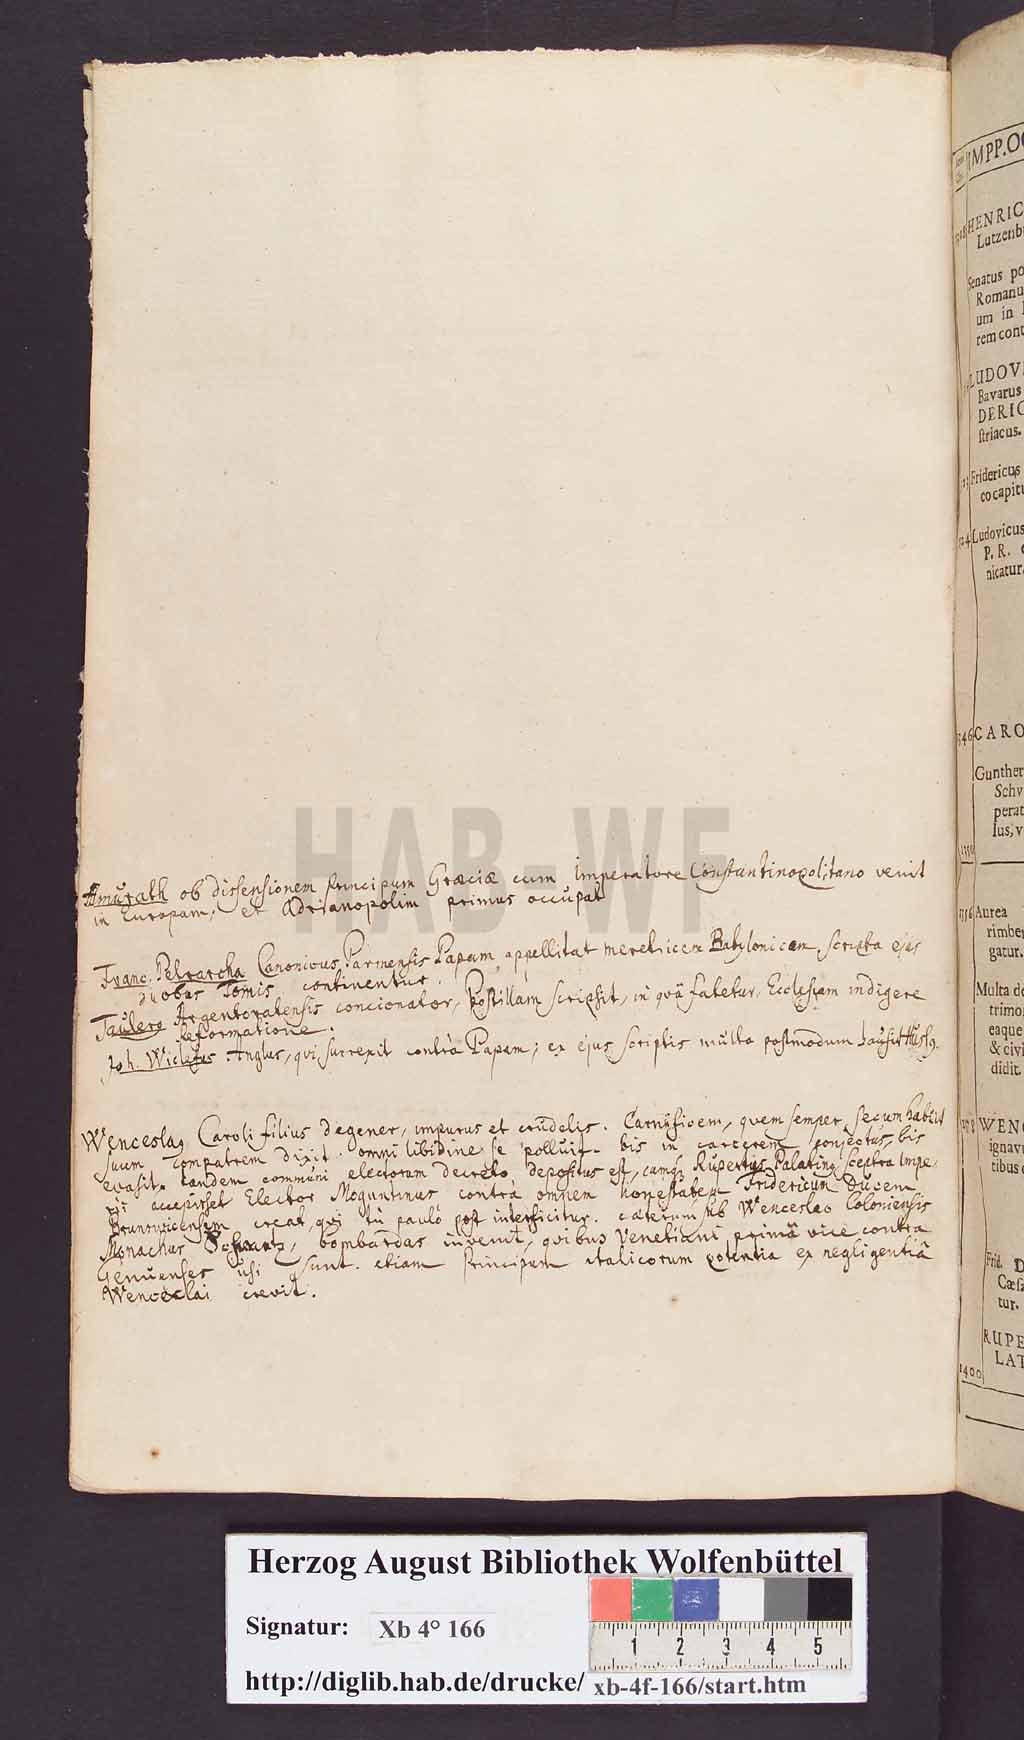 Amurath ob dissensionem Principum Græciæ cum Imperatore Constantinopolitano venit
in Europam, et Adrianopolin primus occupat
Franc. Petrarcha Canonicus Parmensis Papam appellitat meretricem Babylonicam. scripta ejus
duobus Tomis continentur.
Taulerg Argentoratensis concionator, Postillam scripsit, in quâ fatetur, Ecclesiam indigere
Reformatione.
Joh. Wiclefus Anglus, qui surrexit contrà Papam; ex ejus scriptis multa postmodum hausit Hussg.
Wenceslag Caroli filius degener, impurus et crudelis. Carnificem, quem semper secum habuit
suum compatrem dixit. omni libidine se polluit. bis in carcerem conjectus, bis
evasit. tandem communi electorum decreto depositus est, cumq; Rupertus Palating sceptra Impe-
rii accepisset Elector Moguntinus contrà omnem honestatem Fridericum Ducem
Brunsvicensem creat, qui tñ paulò post interficitur. cæterum sub Wenceslao Coloniensis
Monachus Schwartz, bombardas invenit, quibus Venetiani primâ vice contra
Genuenses usi sunt. etiam Principum Italicorum potentia ex negligentiâ
Wenceslai crevit.
IMPP.OC
HENRIC
Lutzenb
Senatus po
Romanu
um in
rem cont
LUDOV
Bavarus
DERIC
striacus.
Fridericus
co capitu
Ludovicus
P. R.
nicatur.
346 CARO
Gunther
Schv
perat
lus, v
Aurea
rimber
gatur.
Multa de
trimo
eaque
& civi
didit.
WENC
ignav
tibus
Frid. D
Cæsa
tur.
RUPE
LAT
1400
HAB-WF
Herzog August Bibliothek Wolfenbüttel
Signatur: Xb 4° 166
1 2 3 4 5
http://diglib.hab.de/drucke/ xb-4f-166/start.htm